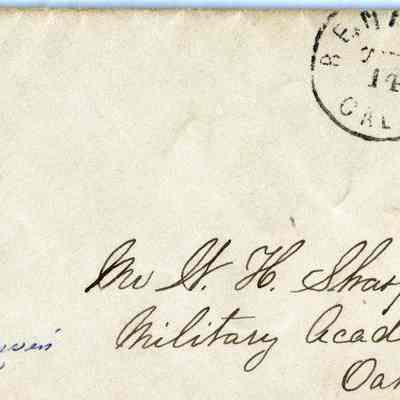 BENI
14
CAL
Mr W. H. Shar
Military Acad
Oak